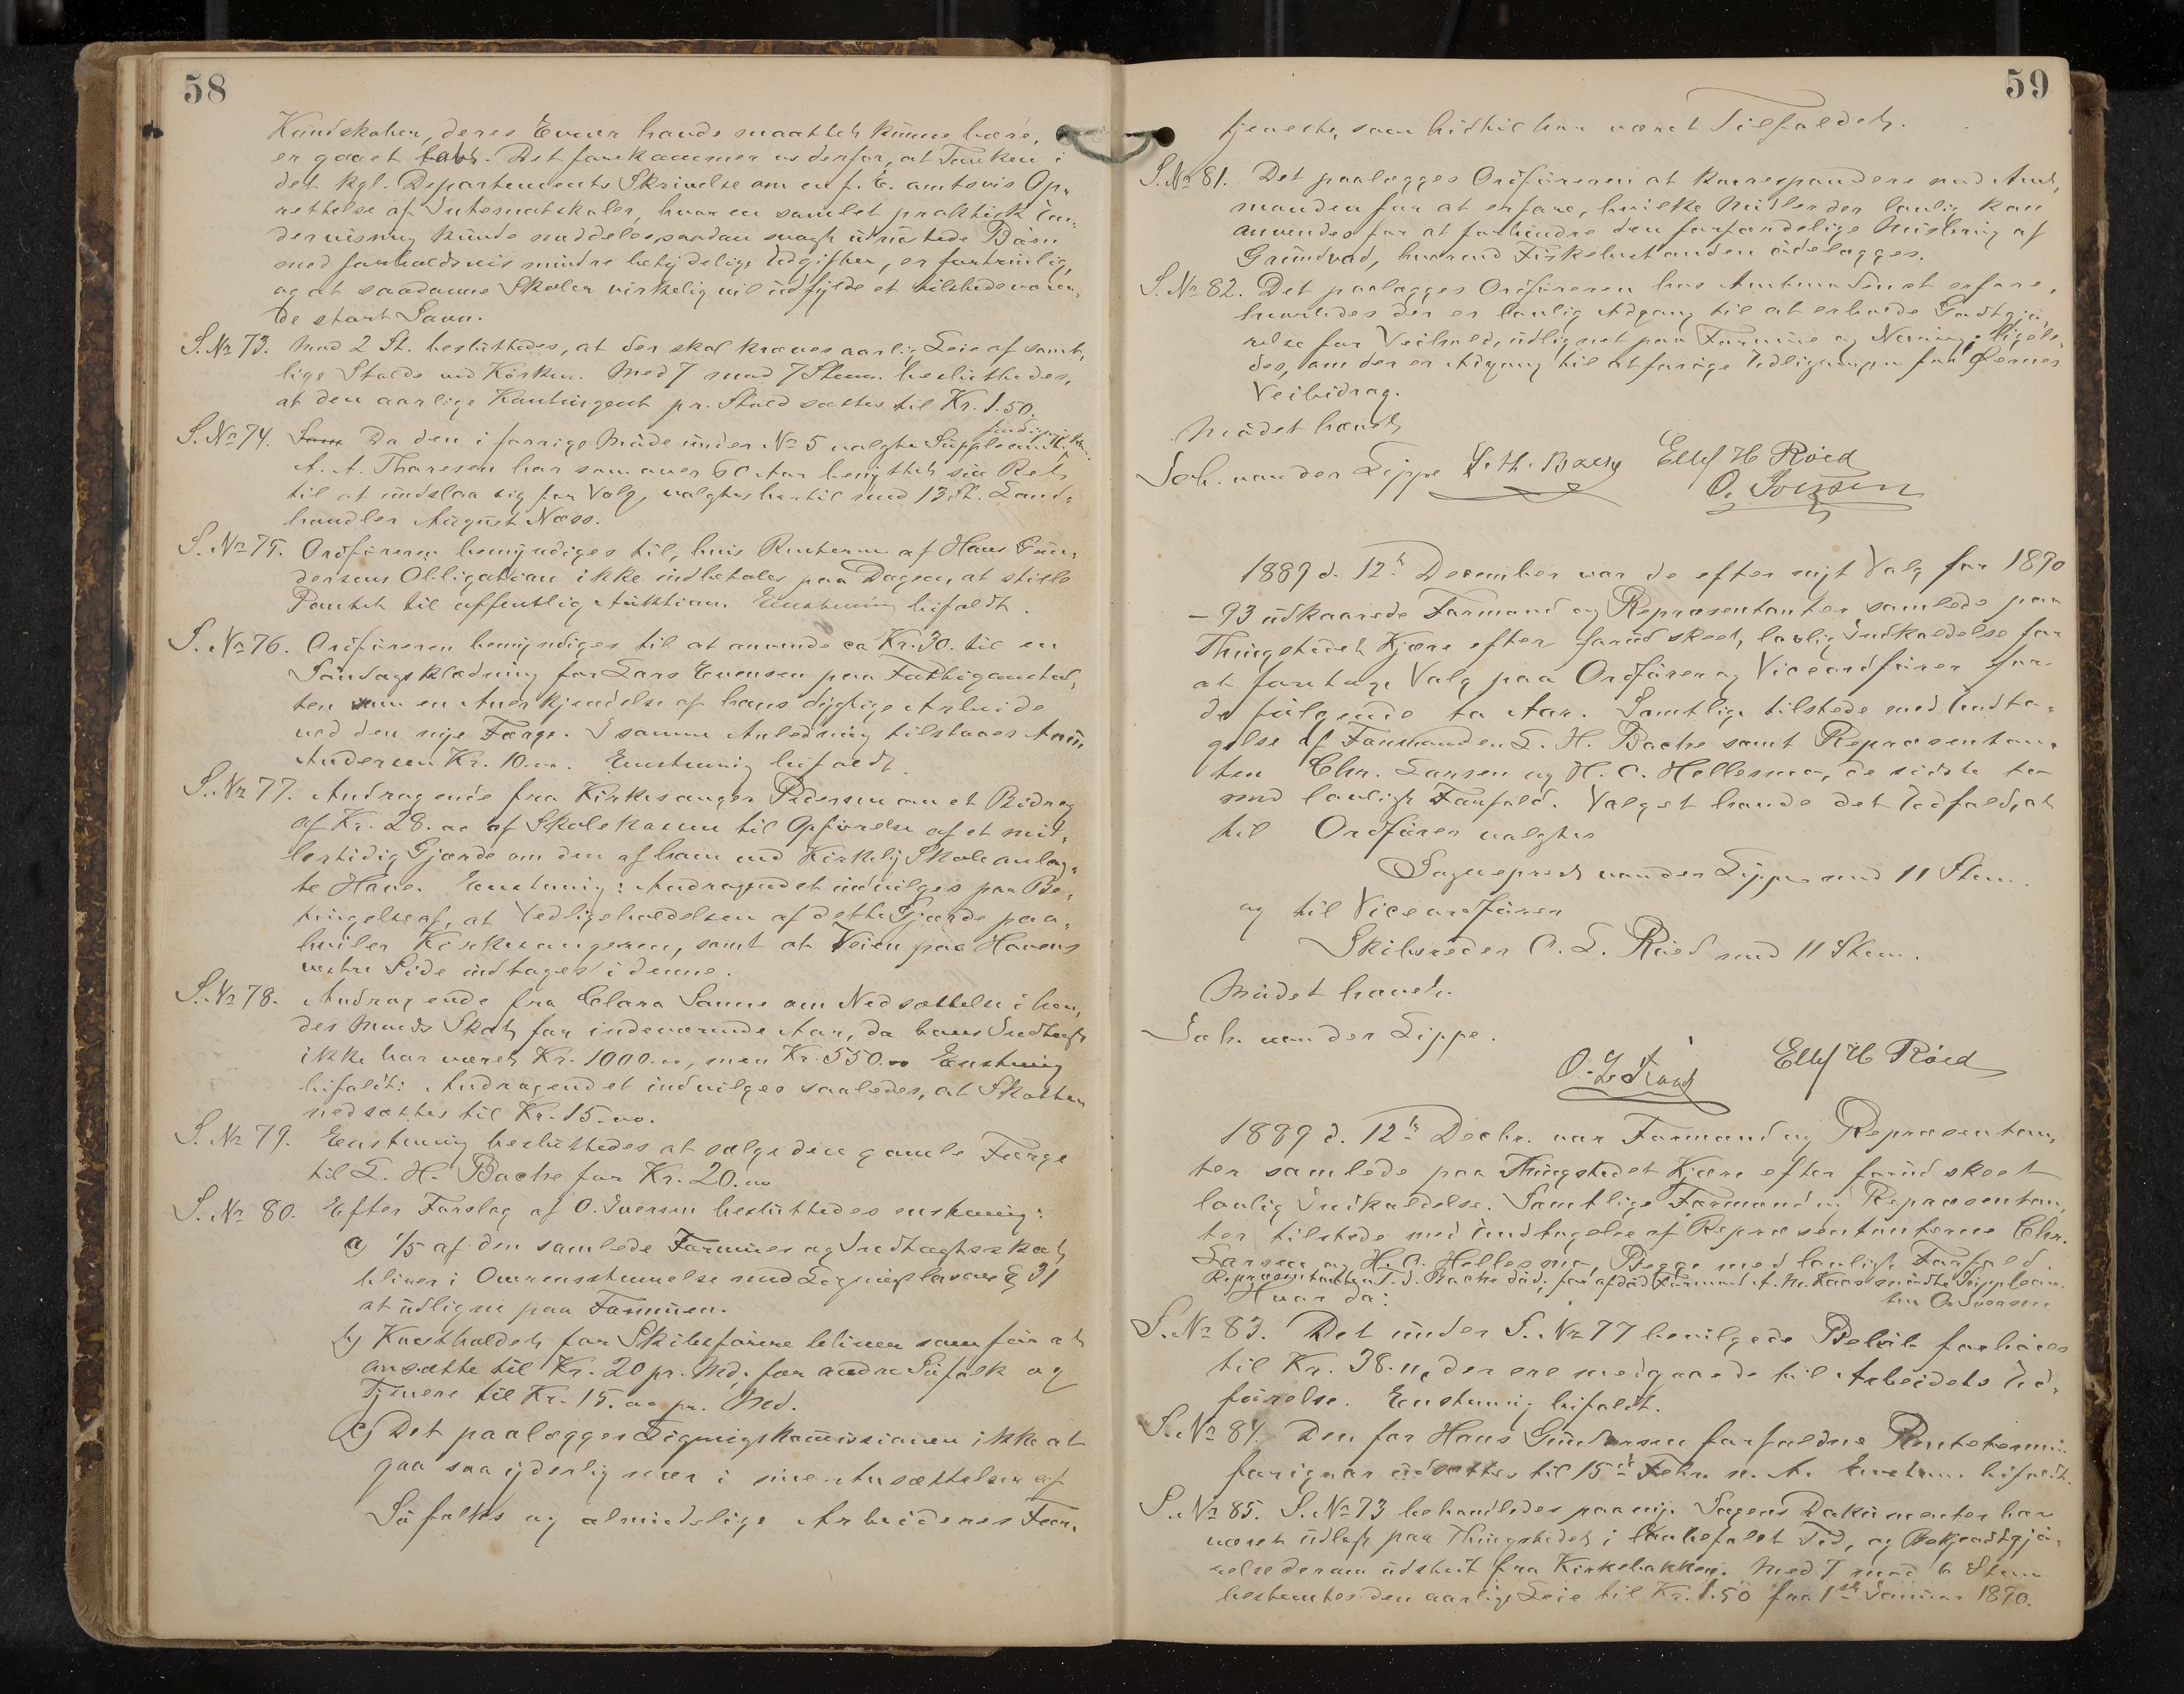 58
Kundskaber, deres Evner havde maattet kunne bære,
er gaaet tabt. Det forekommer os derfor, at Tanken i
det kgl. Departements Skrivelse om en f. E. amtsvis Op-
rettelse af Internatskoler, hvor en samlet praktisk Un-
dervisning kunde meddeles saadan svagt udrustede Børn
med forholdsvis mindre betydelige Udgifter, er fortrinlig,
og at saadanne Skoler virkelig vil udfylde et tilstedeværen-
de stort Savn.
S. No 73. Med 2 St. besluttedes, at der skal kræves aarlig Leie af samt-
lige Stalde ved Kirken. Med 7 mod 7 Stem. besluttedes,
at den aarlige Kontingent pr. Stald sættes til Kr. 1.50.
S. No 74. Da den i forrige Møde under No 5 valgte Suppleant
A. A. Thoresen har som over 60 Aar benyttet sin Ret
til at undslaa sig for Valg, valgtes hertil med 13 St. Land-
handler August Næss.
S. No 75. Ordføreren bemyndiges til, hvis Renterne af Hans Gun-
dersens Obligation ikke indbetales paa Dagen, at stille
Pantet til offentlig Auktion. Enstemmig bifaldt.
S. No 76. Ordføreren bemyndiges til at anvende ca Kr. 30. til en
Søndagsklædning for Lars Evensen paa Fattiganstal-
ten som en Anerkjendelse af hans dygtige Arbeide
ved den nye Færge. I samme Anledning tilstaaes
Andersen Kr. 10.00. Enstemmig bifaldt.
S. No 77. Andragende fra Kirkesanger Pedersen om et Bidrag
af Kr. 28.00 af Skolekassen til Opførelse af et mid-
lertidig Gjærde om den af ham ved Kirkelig Skole anlag-
te Have. Enstemmig: Andragendet indvilges paa Be-
tingelse af, at Vedligeholdelsen af dette Gjærde paa-
hviler Kirkesangeren, samt at Veien paa Havens
vestre Side indtages i denne.
S. No 78. Andragende fra Clara Sanne om Nedsættelse i hen-
des Mands Skat for indeværende Aar, da hans Indtægt
ikke har været Kr. 1000.00, men Kr. 550.00 Enstemmig
bifaldt: Andragendet indvilges saaledes, at Skatten
nedsættes til Kr. 15.00.
S. No 79. Enstemmig besluttedes at sælge den gamle Færge
til L. H. Bache for Kr. 20.00
S. No 80. Efter Forslag af O. Iversen besluttedes enstemmig:
a) 1/5 af den samlede Formues og Indtægtsskat
bliver i Overensstemmelse med Ligningslovens § 31
at udligne paa Formuen.
b) Kostholdet for Skibsførere bliver som før at
ansætte til Kr. 20 pr. Md, for andre Søfolk og
Tjenere til Kr. 15.00 pr. Md.
c) Det paalægges Ligningskommissionen ikke at
gaa saa yderlig nær i sine Ansættelser af
Søfolks og almindelige Arbeideres For-
59
tjeneste, som hidtil har været Tilfældet.
S. No 81. Det paalægges Ordføreren at korrespondere med Amt-
manden for at erfare, hvilke Midler der lovlig kan
anvendes for at forhindre den fordærvelige Misbrug af
Grundvad, hvorved Fiskebestanden ødelægges.
S. No 82. Det paalægges Ordføreren hos Amtmanden at erfare,
hvorledes der er lovlig Adgang til at erholde Godtgjø-
relse for Veihold, udlignet paa Formue og Næring; ligele-
des, om der er Adgang til at forøge Udligningen paa Øernes
Veibidrag.
Mødet hævet
Joh. van der Lippe L. H. Bache Ellef H Röed
O. Iversen
1889 d. 12te December var de efter nyt Valg for 1890
- 93 udkaarede Formænd og Repræsentanter samlede paa
Thingstedet Kjære efter forud skeet, lovlig Indkaldelse for
at foretage Valg paa Ordfører og Viceordfører for
de følgende to Aar. Samtlige tilstede med Undta-
gelse af Formanden L. H. Bache samt Repræsentan-
ten Chr. Larsen og H. C. Hellesmo, de sidste to
med lovligt Forfald. Valget havde det Udfald, at
til Ordfører valgtes
Sogneprest van der Lippe med 11 Stem.
og til Viceordfører
Skibsreder O. L. Röed med 11 Stem.
Mødet hævet.
Joh. van der Lippe.
O. L. Röed Ellef H Röed
1889 d. 12te Decbr. var Formænd og Repræsentan-
ter samlede paa Thingstedet Kjære efter forud skeet
lovlig Indkaldelse. Samtlige Formænd og Repræsentan-
ter tilstede med Undtagelse af Repræsentanterne Chr.
Larsen og H. C. Hellesmo, Begge med lovligt Forfald.
Repræsentanten Bache død; for afdød Formand mødte Supplean-
ten O. Iversen
Hvor da:
S. No 83. Det under S. No 77 bevilgede Beløb forhøies
til Kr. 38.11, der ere medgaaede til Arbeidets Ud-
førelse. Enstemmig bifaldt.
S. No 84. Den for Hans Gundersen forfaldne Rentetermin
forigaar udsættes til 15de Febr. n. A. Enstem. bifaldt.
S. No 85. S. No 73 behandledes paa ny. Sagens Dokumenter har
været udlagt paa Thingstedet i lovbefalet Tid, og Bekjendtgjø-
relse derom udstedt fra Kirkebakken. Med 7 mod 6 Stem
bestemtes den aarlige Leie til Kr. 1.50 fra 1ste Januar 1890.